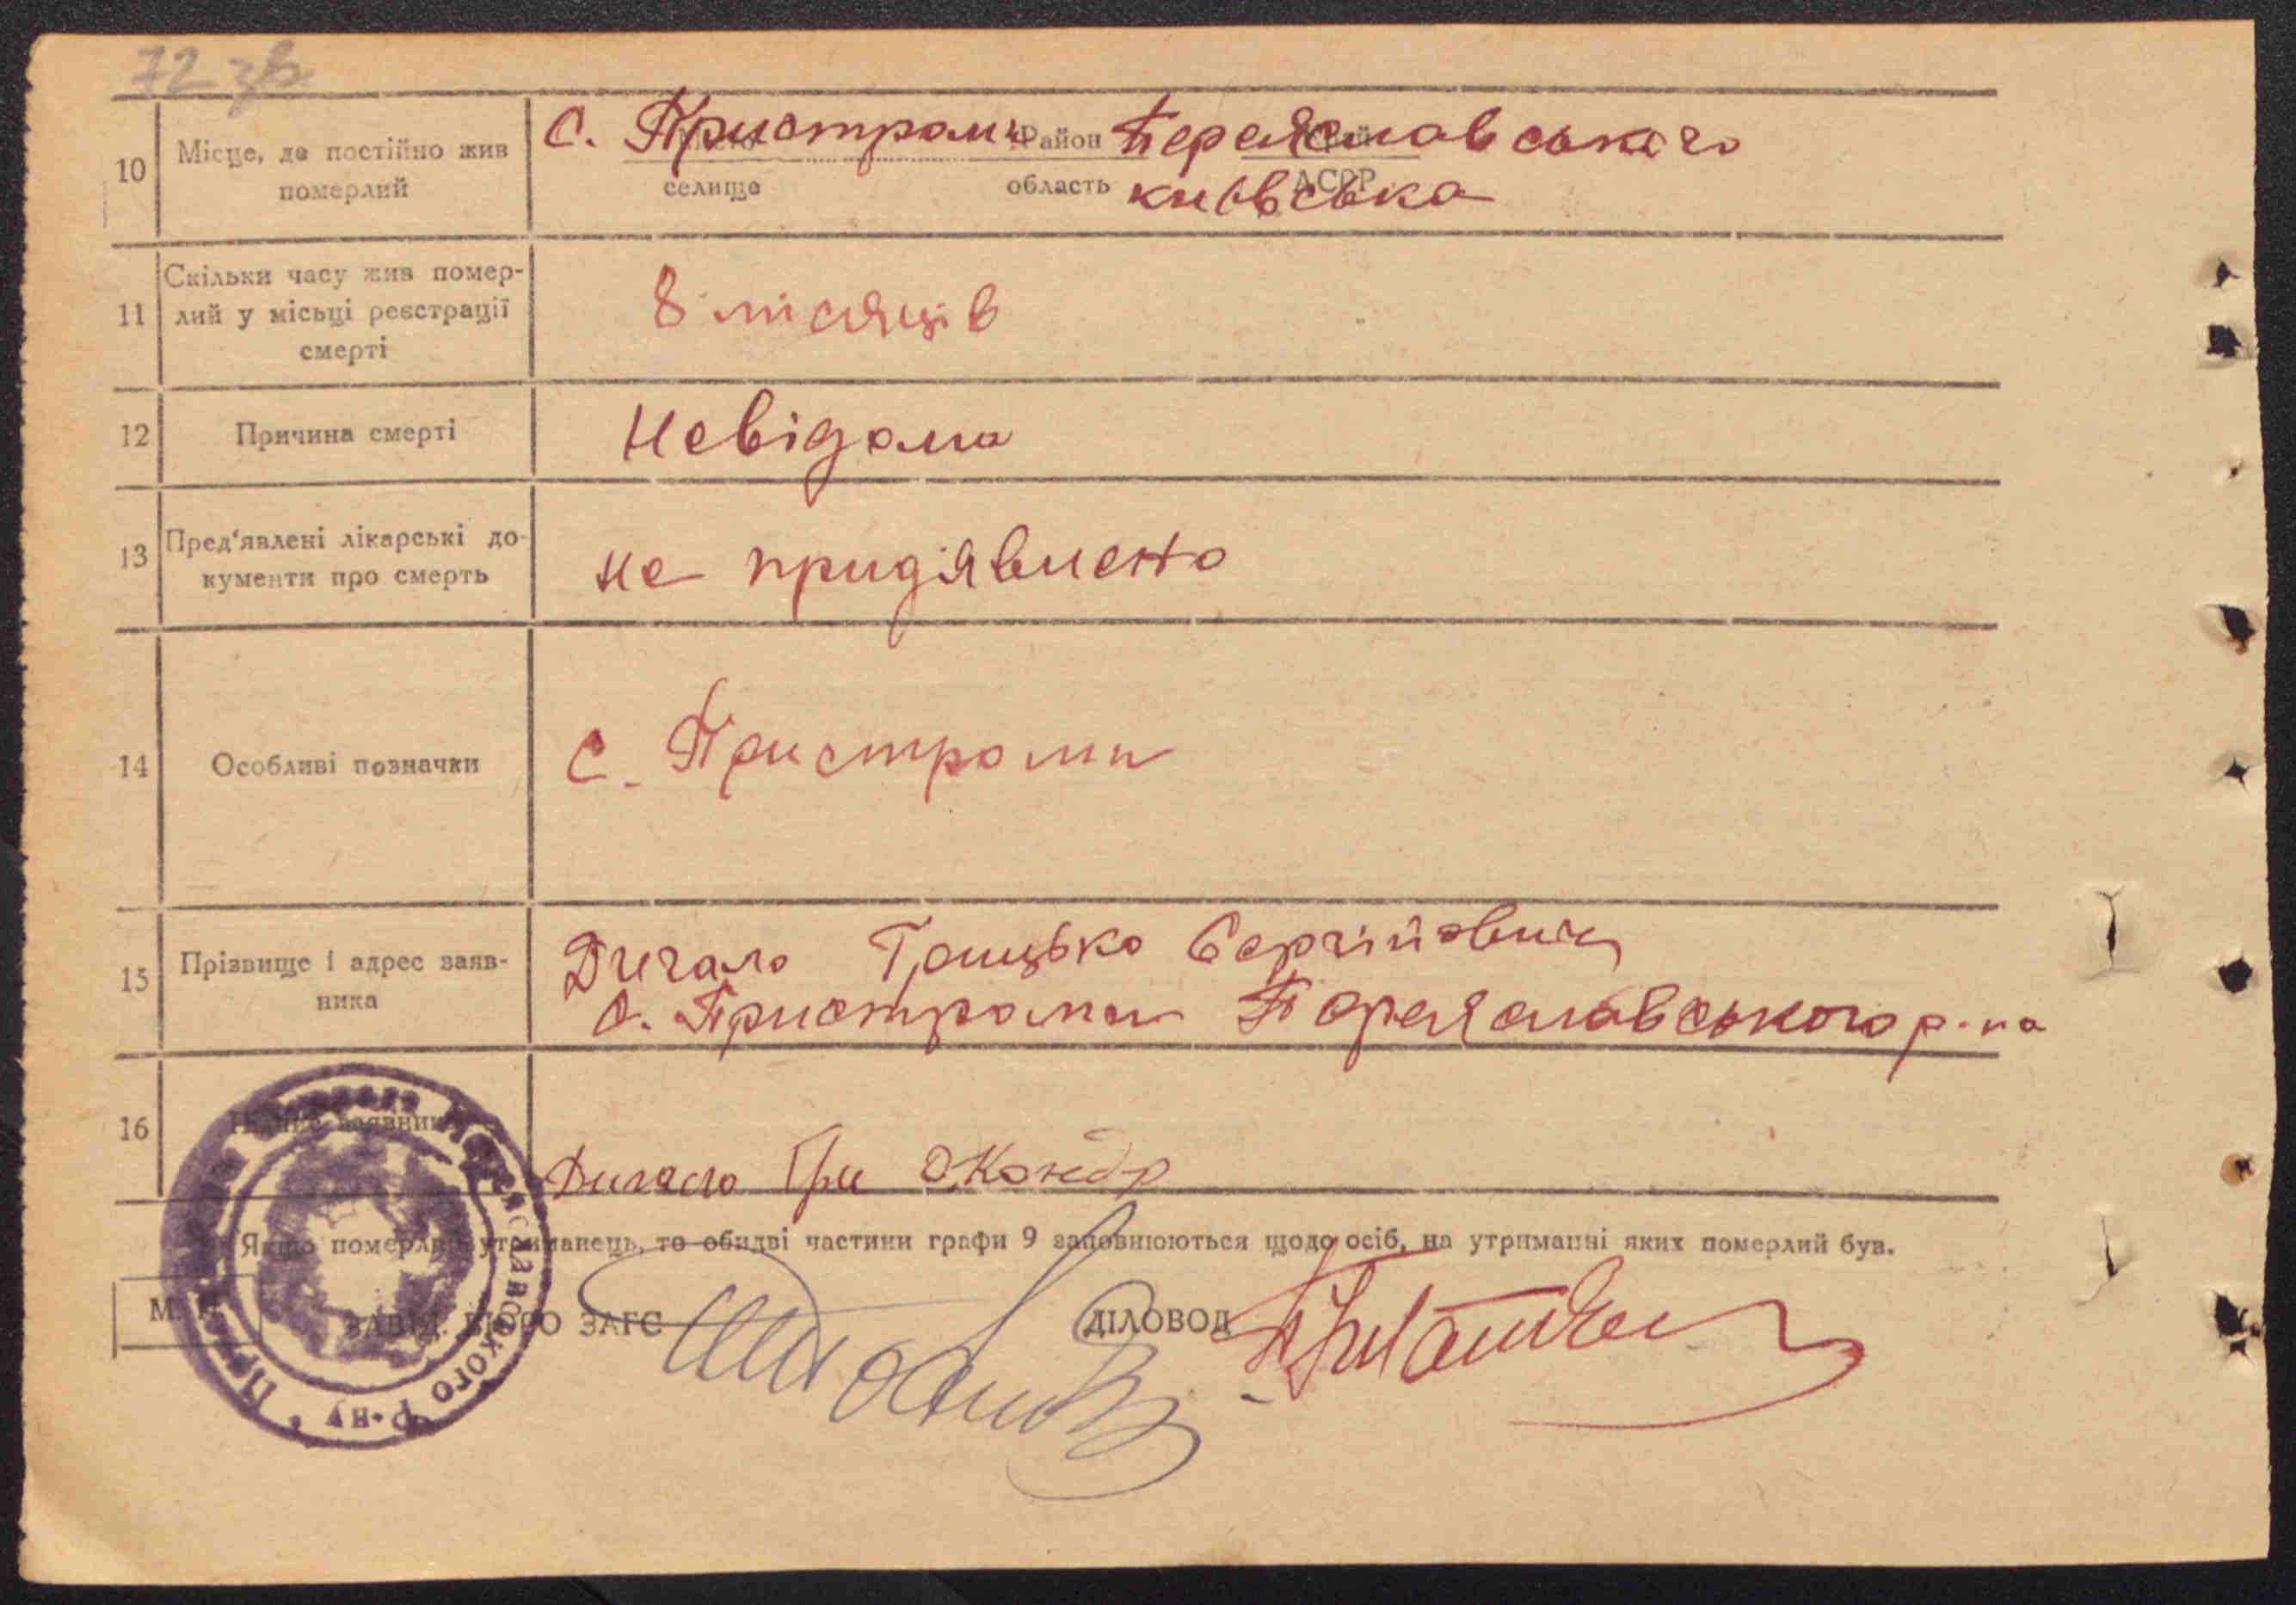 72 зв
10 Місце, де постійно жив померлий
с. Пристроми Район Переяславського
селище область київська АСРР
11 Скільки часу жив помер-
лий у місьці реєстрації
смерті
8 місяців
12 Причина смерті Невідома
13 Пред'явлені лікарські до-
кументи про смерть
не придіявлено
14 Особливі позначки с. Пристроми
15 Прізвище і адрес заяв-
ника
Дигало Грицько Сергійович
с. Пристроми Переяславського р-на
16 Підпис заявника
Дигало Гри
Якщо померлий утриманець, то обидві частини графи 9 заповнюються щодо осіб, на утриманні яких померлий був.
М. П. ЗАВІД. БЮРО ЗАГС ДІЛОВОД
Переяславського р-ну